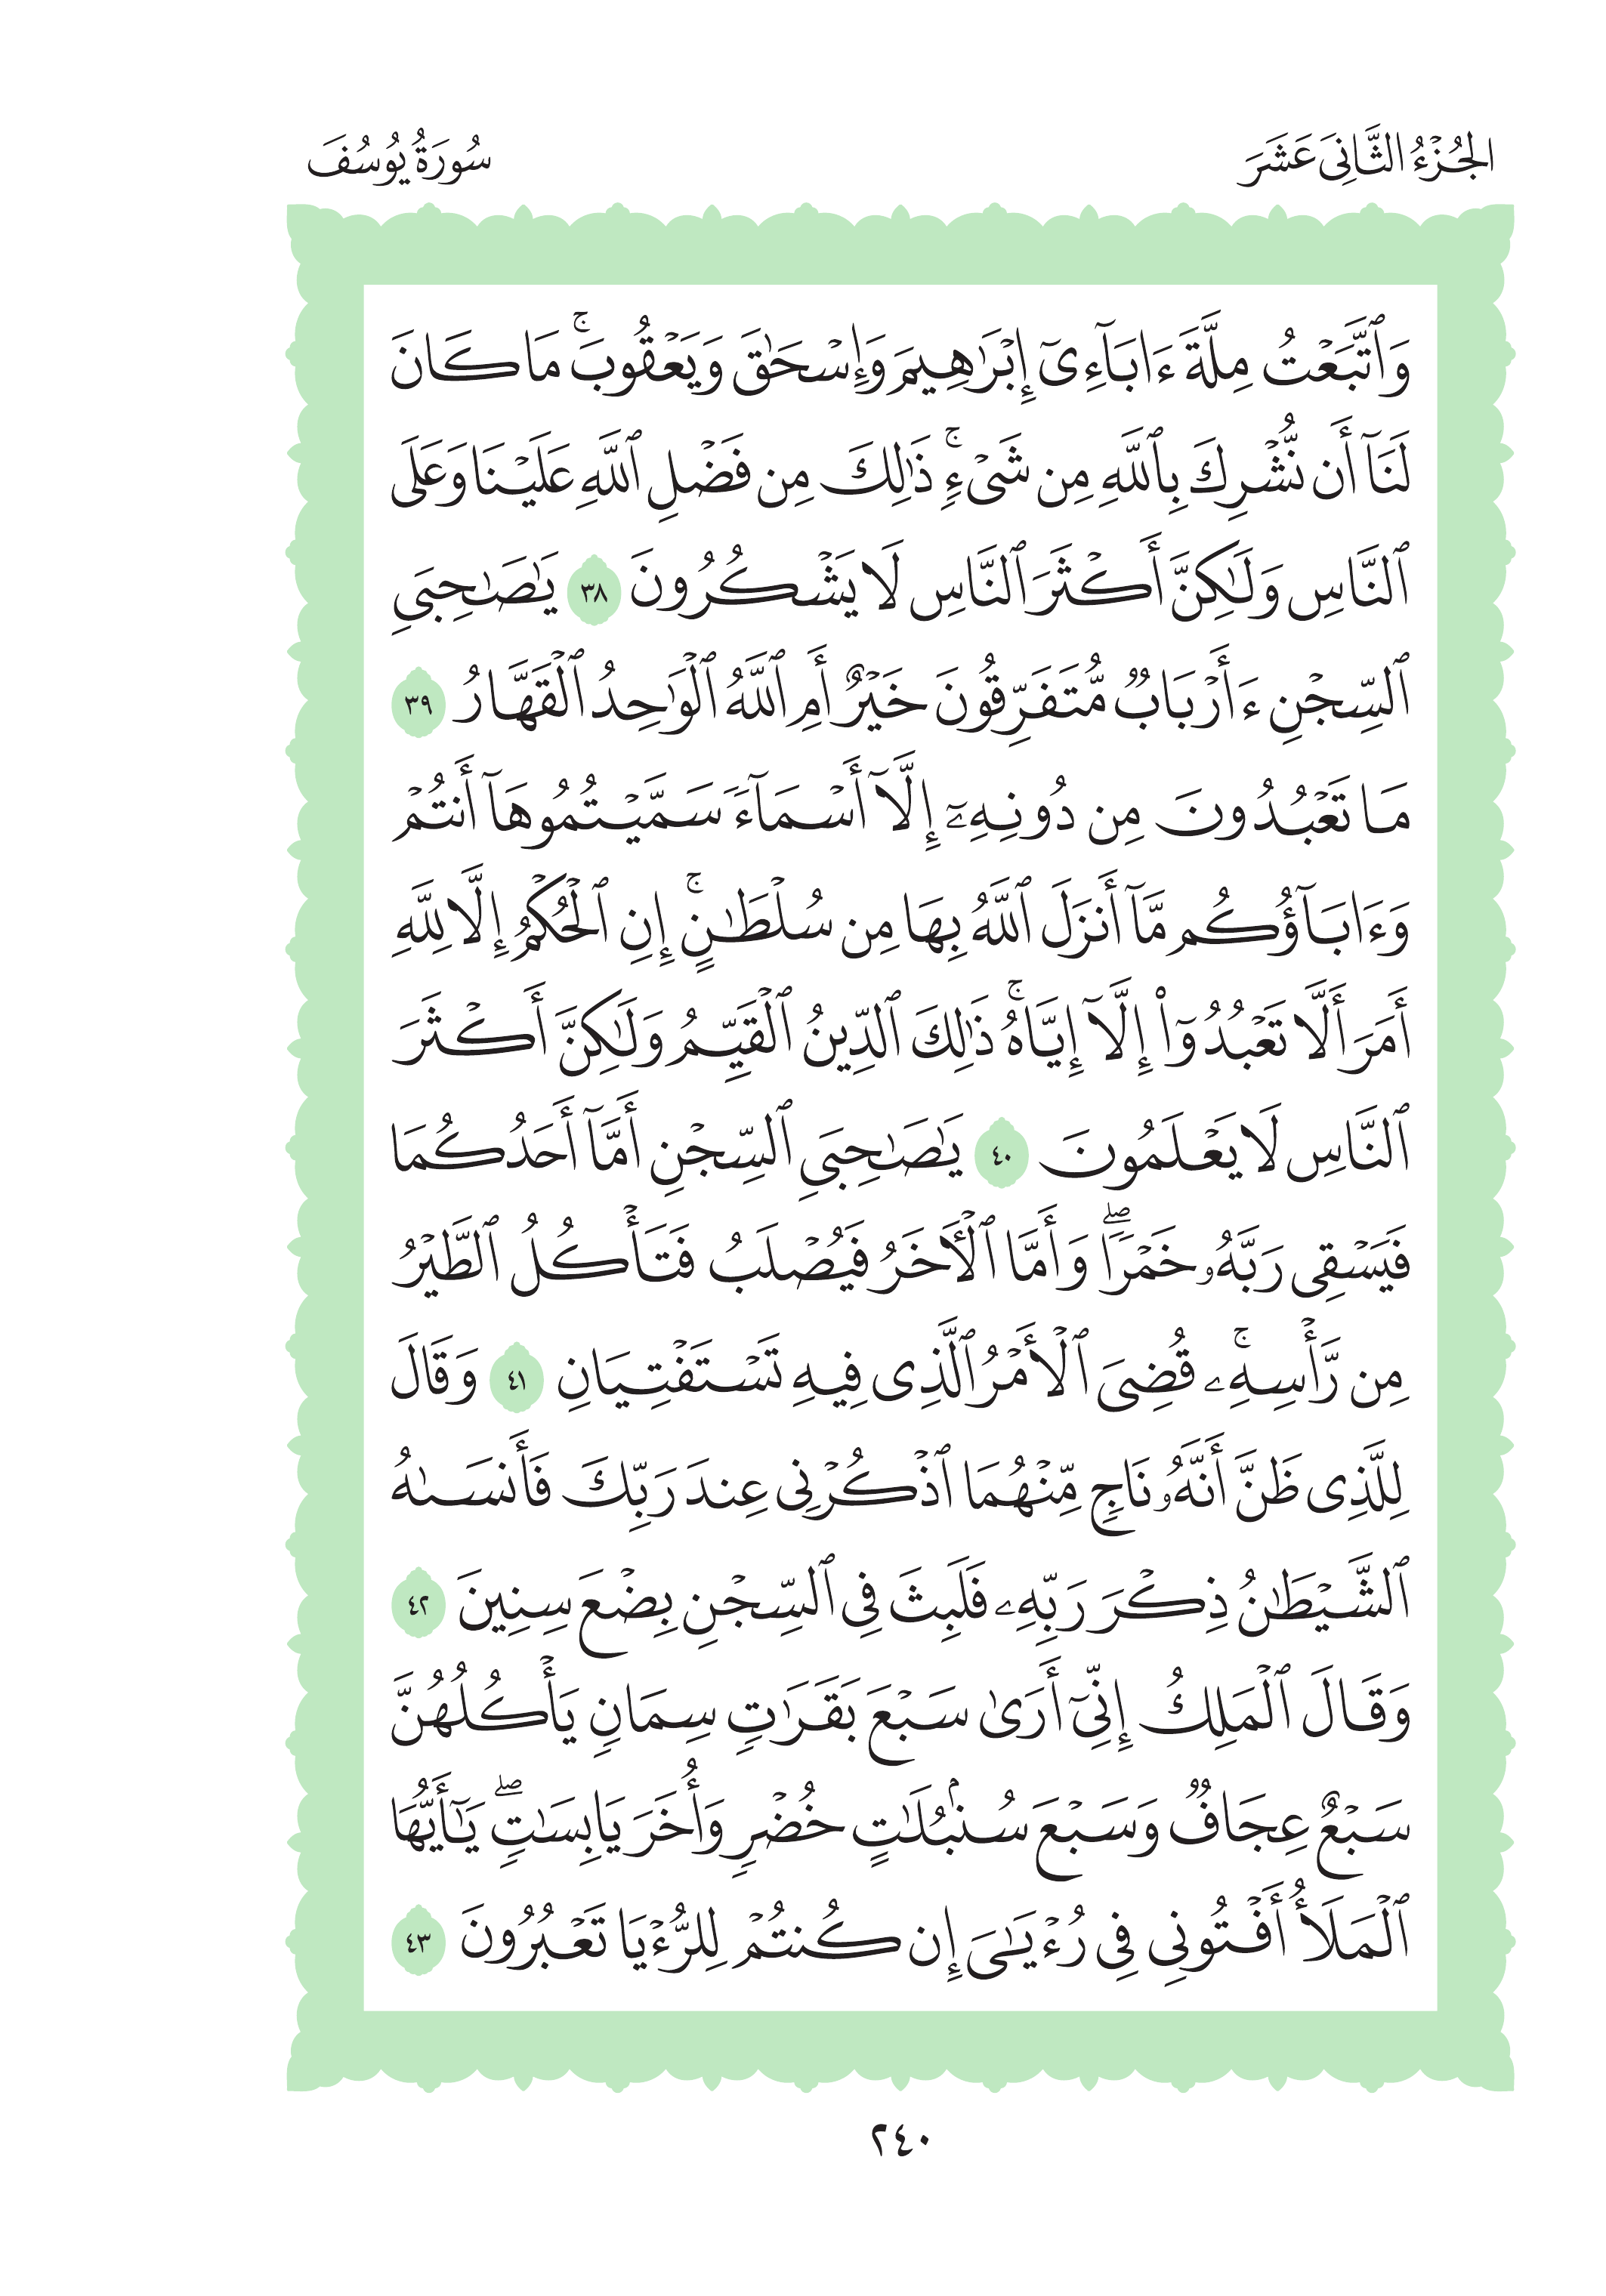 الجُزْءُ الثَّانِيَ عَشَرَ
سُورَةُ يُوسُفَ
وَٱتَّبَعۡتُ مِلَّةَ ءَابَآءِيٓ إِبۡرَٰهِيمَ وَإِسۡحَٰقَ وَيَعۡقُوبَۚ مَا كَانَ
لَنَآ أَن نُّشۡرِكَ بِٱللَّهِ مِن شَيۡءٖۚ ذَٰلِكَ مِن فَضۡلِ ٱللَّهِ عَلَيۡنَا وَعَلَى
ٱلنَّاسِ وَلَٰكِنَّ أَكۡثَرَ ٱلنَّاسِ لَا يَشۡكُرُونَ ٣٨ يَٰصَٰحِبَيِ
ٱلسِّجۡنِ ءَأَرۡبَابٞ مُّتَفَرِّقُونَ خَيۡرٌ أَمِ ٱللَّهُ ٱلۡوَٰحِدُ ٱلۡقَهَّارُ ٣٩
مَا تَعۡبُدُونَ مِن دُونِهِۦٓ إِلَّآ أَسۡمَآءٗ سَمَّيۡتُمُوهَآ أَنتُمۡ
وَءَابَآؤُكُم مَّآ أَنزَلَ ٱللَّهُ بِهَا مِن سُلۡطَٰنٍۚ إِنِ ٱلۡحُكۡمُ إِلَّا لِلَّهِ
أَمَرَ أَلَّا تَعۡبُدُوٓاْ إِلَّآ إِيَّاهُۚ ذَٰلِكَ ٱلدِّينُ ٱلۡقَيِّمُ وَلَٰكِنَّ أَكۡثَرَ
ٱلنَّاسِ لَا يَعۡلَمُونَ ٤٠ يَٰصَٰحِبَيِ ٱلسِّجۡنِ أَمَّآ أَحَدُكُمَا
فَيَسۡقِي رَبَّهُۥ خَمۡرٗاۖ وَأَمَّا ٱلۡأٓخَرُ فَيُصۡلَبُ فَتَأۡكُلُ ٱلطَّيۡرُ
مِن رَّأۡسِهِۦۚ قُضِيَ ٱلۡأَمۡرُ ٱلَّذِي فِيهِ تَسۡتَفۡتِيَانِ ٤١ وَقَالَ
لِلَّذِي ظَنَّ أَنَّهُۥ نَاجٖ مِّنۡهُمَا ٱذۡكُرۡنِي عِندَ رَبِّكَ فَأَنسَىٰهُ
ٱلشَّيۡطَٰنُ ذِكۡرَ رَبِّهِۦ فَلَبِثَ فِي ٱلسِّجۡنِ بِضۡعَ سِنِينَ ٤٢
وَقَالَ ٱلۡمَلِكُ إِنِّيٓ أَرَىٰ سَبۡعَ بَقَرَٰتٖ سِمَانٖ يَأۡكُلُهُنَّ
سَبۡعٌ عِجَافٞ وَسَبۡعَ سُنۢبُلَٰتٍ خُضۡرٖ وَأُخَرَ يَابِسَٰتٖۖ يَٰٓأَيُّهَا
ٱلۡمَلَأُ أَفۡتُونِي فِي رُءۡيَٰيَ إِن كُنتُمۡ لِلرُّءۡيَا تَعۡبُرُونَ ٤٣
٢٤٠